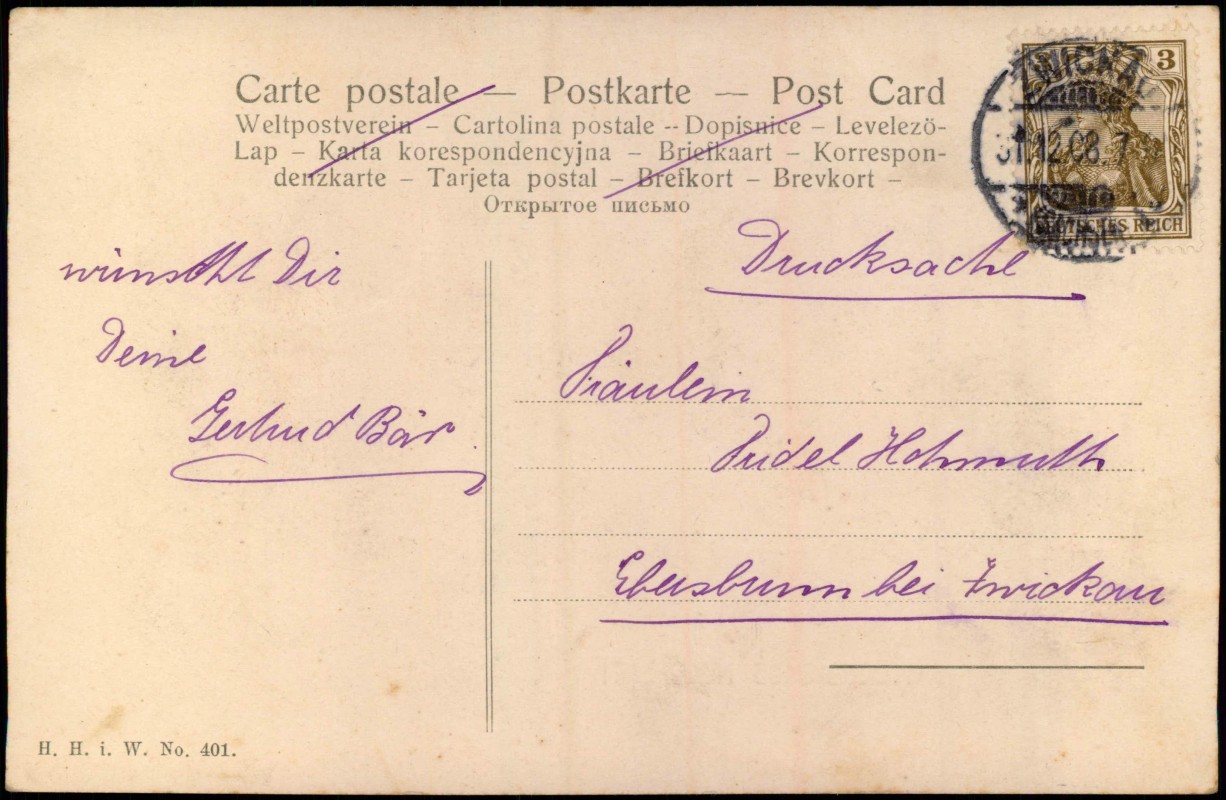 Carte postale — Postkarte — Post Card
Weltpostverein – Cartolina postale -- Dopisnice – Levelezö-
Lap – Karta korespondencyjna – Briefkaart – Korrespon-
denzkarte – Tarjeta postal – Brefkort – Brevkort –
Открытое письмо
3
31.12.08. 7
DEUTSCHES REICH
Drucksache
wünscht Dir
Deine
Gertrud Bär
Fräulein
Fridel Hohmuth
Ebersbrunn bei Zwickau
H. H. i. W. No. 401.